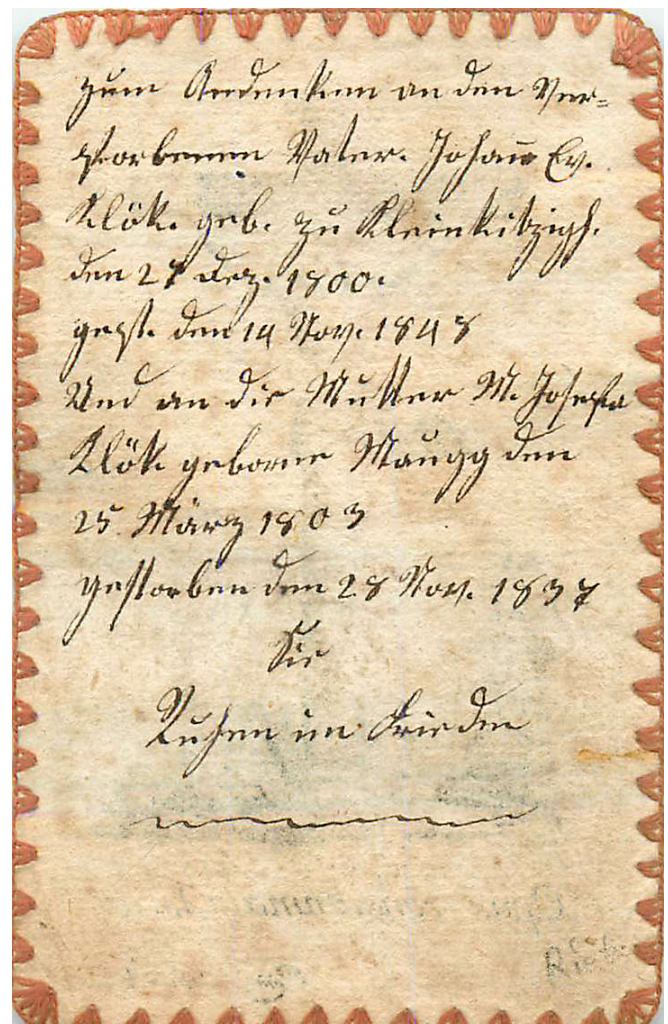 Zum Andenken an den Ver=
storbenen Vater. Johan̅ Ev.
Klök. geb. zu Kleinkitzigh.
den 27 Dez. 1800.
gest. den 14 Nov. 1848
Und an die Mutter M. Josepha
Klök geborne Maugg den
25 März 1803
gestorben den 28 Nov. 1837
Sie
Ruhen im Frieden